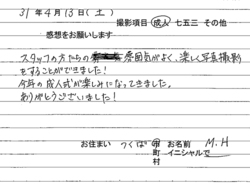 31年4月13日(土)
撮影項目 成人 七五三 その他
感想をお願いします
スタッフの方たちの雰囲気がよく、楽しく写真撮影
をすることができました!
今年の成人式が楽しみになってきました。
ありがとうございました!
お住まい つくば 市町村 お名前 イニシャルで M.H